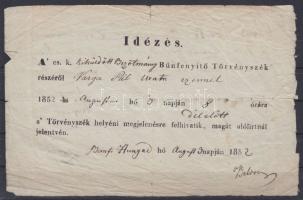 Idézés.
A' cs. k. kiküldött Bizotmány Bünfenyitő Törvényszék
részéről Varga Pál uratu ezennel
1852 ik Augustus hó 3 napján 8 órára
délelőtt
a' Törvényszék helyéni megjelenésre felhivatik, magát előőrtnél
jelentvén.
Hunyad hó August 3 napján 1852